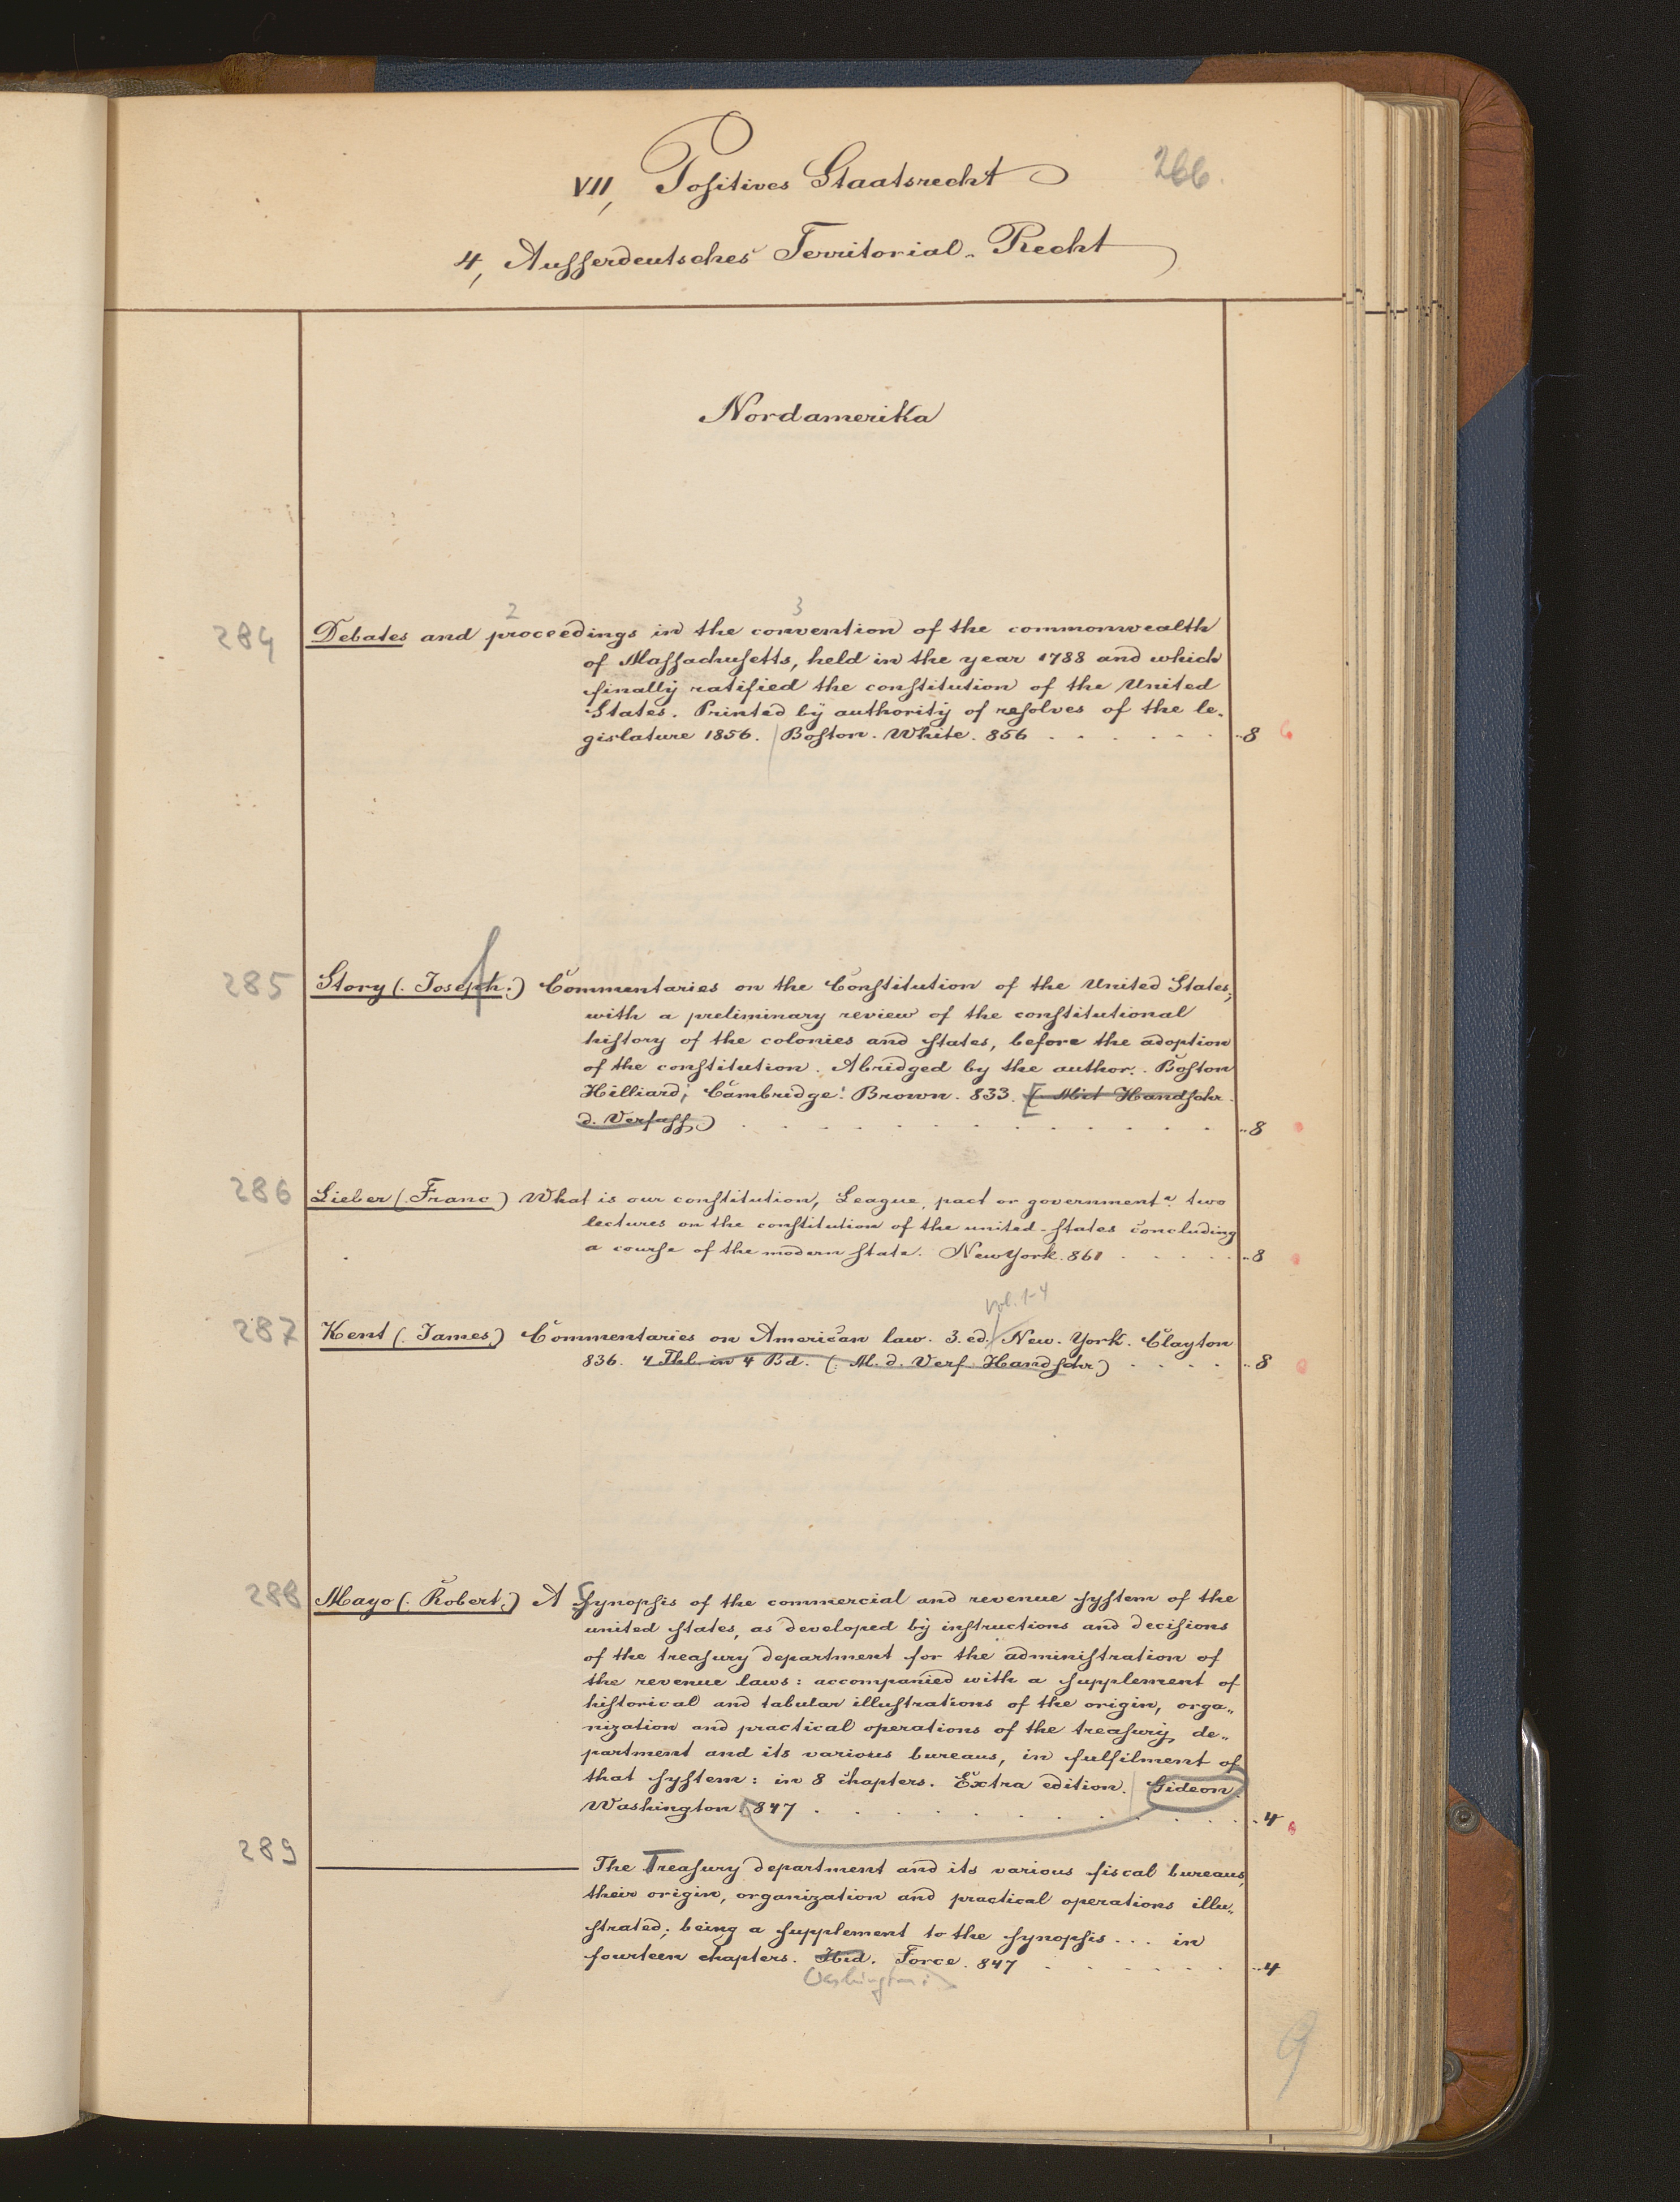 VII, Positives Staatsrecht 266.
4, Ausserdeutsches Territorial-Recht
Nordamerika
2 3
284 Debates and proceedings in the convention of the commonwealth
of Massachusetts, held in the year 1788 and which
finally ratified the constitution of the United
States. Printed by authority of resolves of the le-
gislature 1856. | Boston. White. 856 . . . . . . 8
285 Story (. Joseph.) Commentaries on the Constitution of the United States;
with a preliminary review of the constitutional
history of the colonies and states, before the adoption
of the constitution. Abridged by the author. Boston
Hilliard; Cambridge: Brown. 833. (. Mit Handschr.
d. Verfass.) . . . . . . . . . . . . 8
286 Lieber (. Franc) What is our constitution, League, pact or government? two
lectures on the constitution of the united-states concluding
a course of the modern state. New York. 861 . . . . . 8
vol. 1-4
287 Kent (. James.) Commentaries on American law. 3. ed. New-York. Clayton
836. 4 Thl. in 4 Bd. (. M. d. Verf. Handschr) . . . . 8
288 Mayo (. Robert.) A Synopsis of the commercial and revenue system of the
united states, as developed by instructions and decisions
of the treasury department for the administration of
the revenue laws: accompanied with a supplement of
historical and tabular illustrations of the origin, orga-
nization and practical operations of the treasury de-
partment and its various bureaus, in fulfilment of
that system: in 8 chapters. Extra edition. | Gideon.
Washington 847 . . . . . . . . . . 4
289 ——— The Treasury department and its various fiscal bureaus,
their origin, organization and practical operations illu-
strated; being a supplement to the synopsis . . . in
fourteen chapters. Ibid. Force. 847 . . . . . . 4
Washington:
9